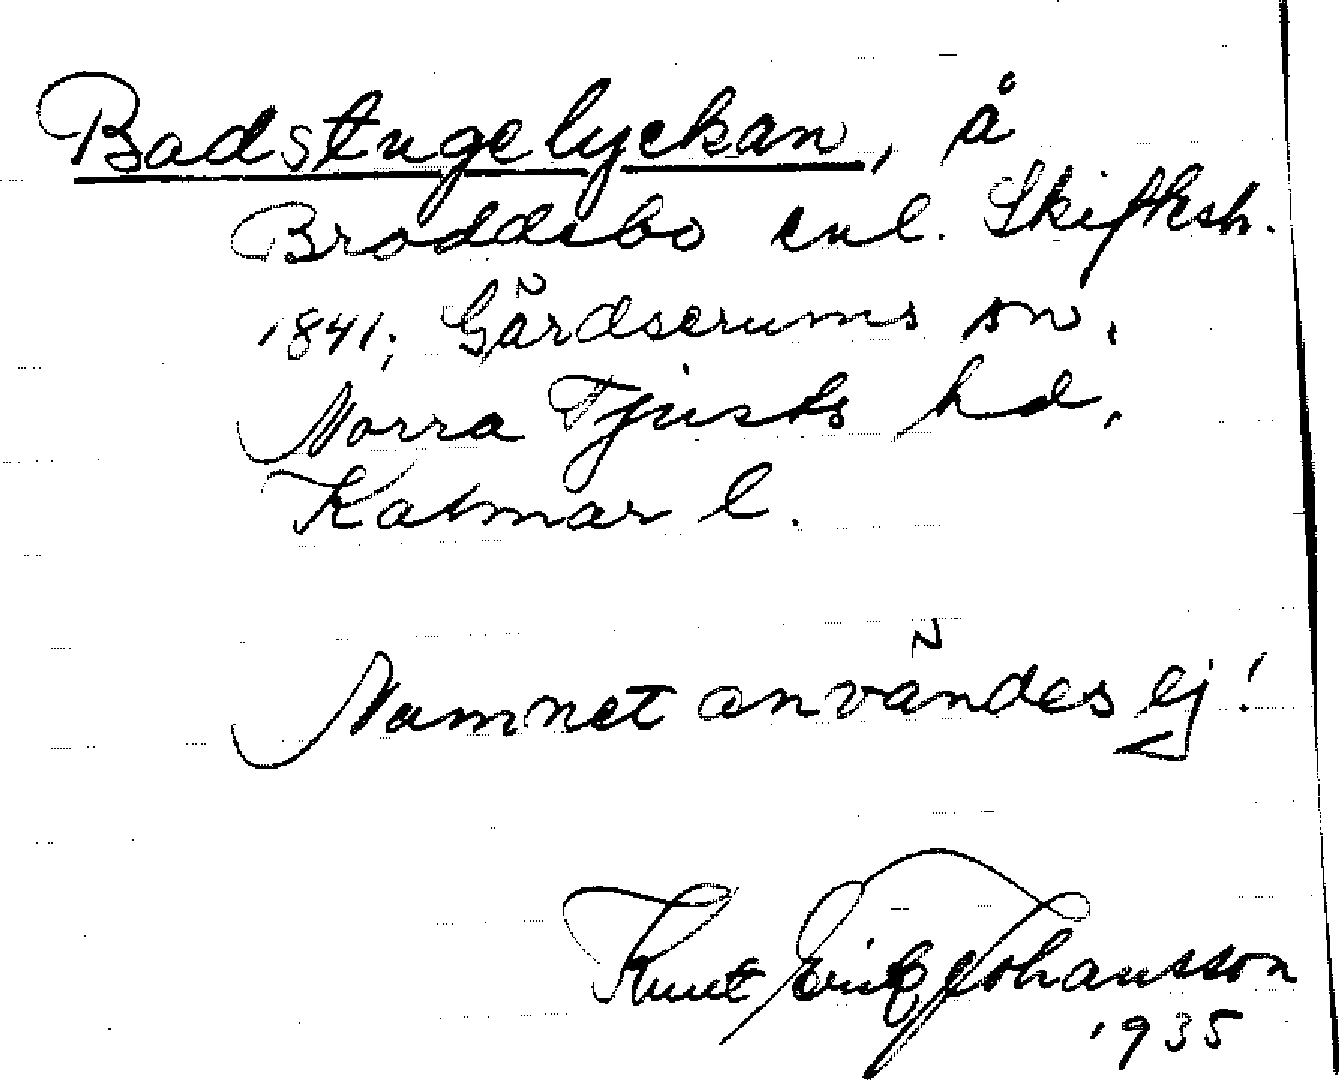 Badstugelyckan, å
Broddebo enl. Skifteh.
1841; Gärdserums sn,
Norra Tjusts hd,
Kalmar l.
Namnet användes ej!
Knut Eric Johansson
1935